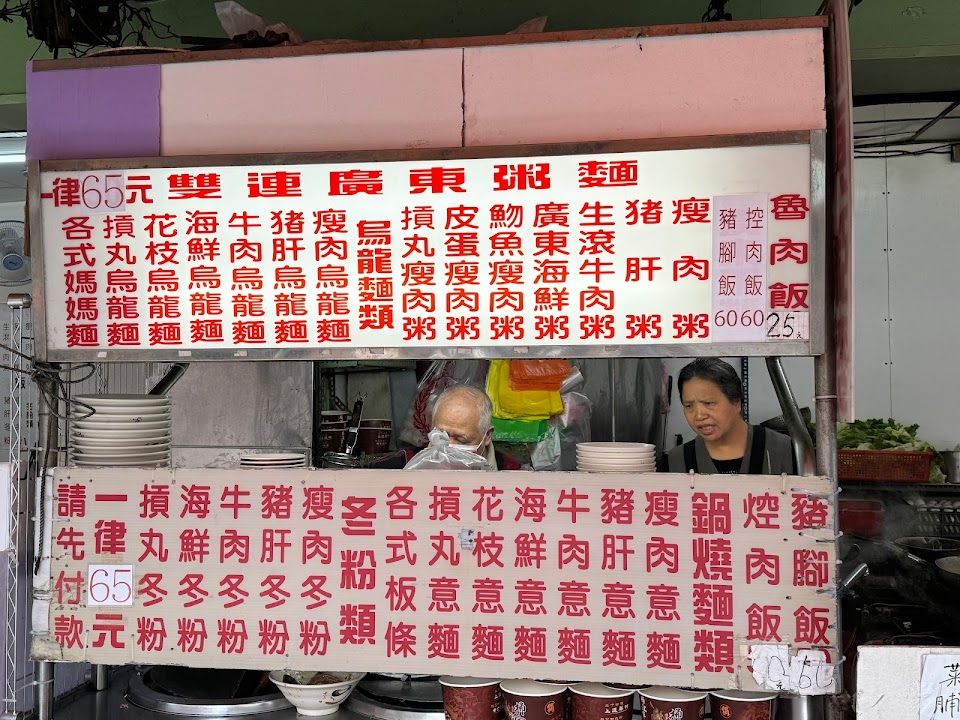 一律65元
雙連廣東粥麵
魯肉飯
25元
控肉飯
60
豬腳飯
60
瘦肉粥
豬肝粥
生滾牛肉粥
廣東海鮮粥
魩魚瘦肉粥
皮蛋瘦肉粥
摃丸瘦肉粥
烏龍麵類
瘦肉烏龍麵
豬肝烏龍麵
牛肉烏龍麵
海鮮烏龍麵
花枝烏龍麵
摃丸烏龍麵
各式媽媽麵
豬腳飯
焢肉飯
鍋燒麵類
瘦肉意麵
豬肝意麵
牛肉意麵
海鮮意麵
花枝意麵
摃丸意麵
各式板條
冬粉類
瘦肉冬粉
豬肝冬粉
牛肉冬粉
海鮮冬粉
摃丸冬粉
一律65元
請先付款
菜脯